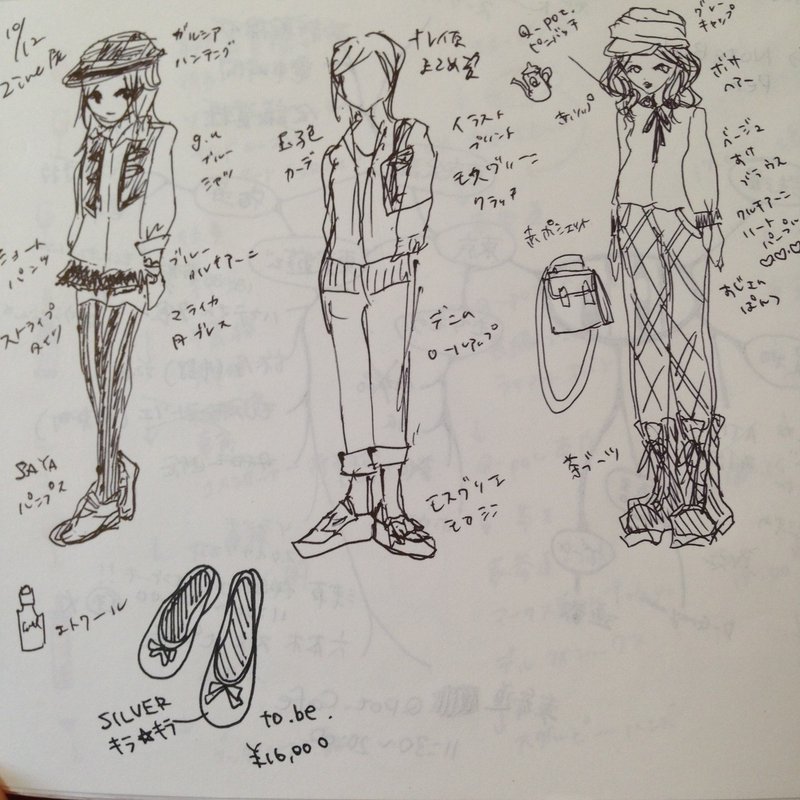 10/12
Zine展
ガルシア
ハンチング
g.u
ブルー
シャツ
ショート
パンツ
ブルー
クルチアーニ
マライカ
Aブレス
ストライプ
タイツ
SAYA
パンプス
玉子色
カーデ
まとめ髪
イラスト
プリント
モスグリーン
クラッチ
デニム
ロールアップ
モスグリーン
Q-pot.
グレー
キャップ
ボサ
ヘアー
赤リップ
ベージュ
ブラウス
クルチアーニ
ハート
♡♡♡
赤ポシェット
ぱんつ
茶ブーツ
エトワール
SILVER
キラ☆キラ
to.be.
¥16,000